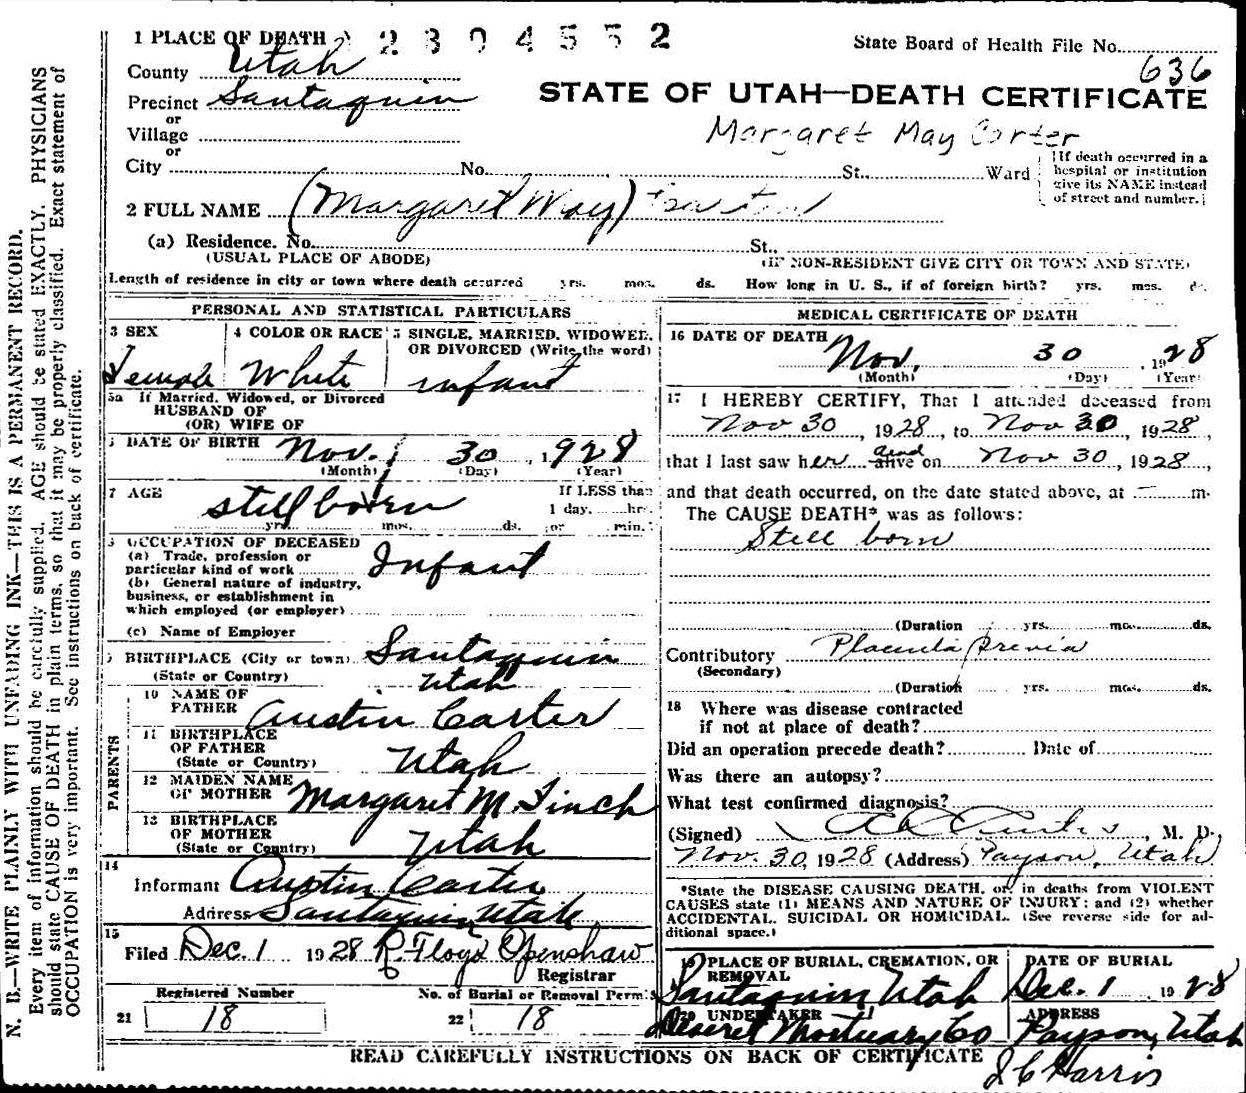 1 PLACE OF DEATH 2 3 0 4 5 5 2
State Board of Health File No.
County Utah
636
Precinct Santaquin
STATE OF UTAH—DEATH CERTIFICATE
or
Village
Margaret May Carter
or
City No. St. Ward
(If death occurred in a
hospital or institution
give its NAME instead
of street and number.)
2 FULL NAME (Margaret May)
(a) Residence. No. St.,
(USUAL PLACE OF ABODE) (IF NON-RESIDENT GIVE CITY OR TOWN AND STATE)
Length of residence in city or town where death occurred yrs. mos. ds. How long in U. S., if of foreign birth? yrs. mos. ds.
PERSONAL AND STATISTICAL PARTICULARS
3 SEX 4 COLOR OR RACE 5 SINGLE, MARRIED, WIDOWED,
OR DIVORCED (Write the word)
Female White infant
5a If Married, Widowed, or Divorced
HUSBAND OF
(OR) WIFE OF
6 DATE OF BIRTH Nov. 30, 1928
(Month) (Day) (Year)
7 AGE stillborn If LESS than
1 day, hrs.
yrs. mos. ds. or min.
8 OCCUPATION OF DECEASED
(a) Trade, profession or
particular kind of work Infant
(b) General nature of industry,
business, or establishment in
which employed (or employer)
(c) Name of Employer
9 BIRTHPLACE (City or town) Santaquin
(State or Country) Utah
PARENTS
10 NAME OF
FATHER Austin Carter
11 BIRTHPLACE
OF FATHER
(State or Country) Utah
12 MAIDEN NAME
OF MOTHER Margaret M. Finch
13 BIRTHPLACE
OF MOTHER
(State or Country) Utah
14
Informant Austin Carter
Address Santaquin Utah
15
Filed Dec. 1 1928 R. Floyd Openshaw
Registrar
Registered Number No. of Burial or Removal Permit
21 18 22 18
MEDICAL CERTIFICATE OF DEATH
16 DATE OF DEATH Nov. 30, 1928
(Month) (Day) (Year)
17 I HEREBY CERTIFY, That I attended deceased from
Nov 30, 1928, to Nov 30, 1928,
that I last saw her alive dead on Nov 30, 1928,
and that death occurred, on the date stated above, at — m.
The CAUSE DEATH* was as follows:
Still born
(Duration yrs. mos. ds.
Contributory Placenta previa
(Secondary)
(Duration yrs. mos. ds.
18 Where was disease contracted
if not at place of death?
Did an operation precede death? Date of
Was there an autopsy?
What test confirmed diagnosis?
(Signed) Curtis, M. D.,
Nov. 30, 1928 (Address) Payson, Utah
*State the DISEASE CAUSING DEATH, or, in deaths from VIOLENT
CAUSES state (1) MEANS AND NATURE OF INJURY; and (2) whether
ACCIDENTAL, SUICIDAL OR HOMICIDAL. (See reverse side for ad-
ditional space.)
19 PLACE OF BURIAL, CREMATION, OR
REMOVAL
Santaquin Utah
DATE OF BURIAL
Dec. 1 1928
20 UNDERTAKER
Deseret Mortuary Co
ADDRESS
Payson, Utah
READ CAREFULLY INSTRUCTIONS ON BACK OF CERTIFICATE
J C Harris
N. B.—WRITE PLAINLY WITH UNFADING INK—THIS IS A PERMANENT RECORD.
Every item of information should be carefully supplied. AGE should be stated EXACTLY. PHYSICIANS
should state CAUSE OF DEATH in plain terms, so that it may be properly classified. Exact statement of
OCCUPATION is very important. See instructions on back of certificate.